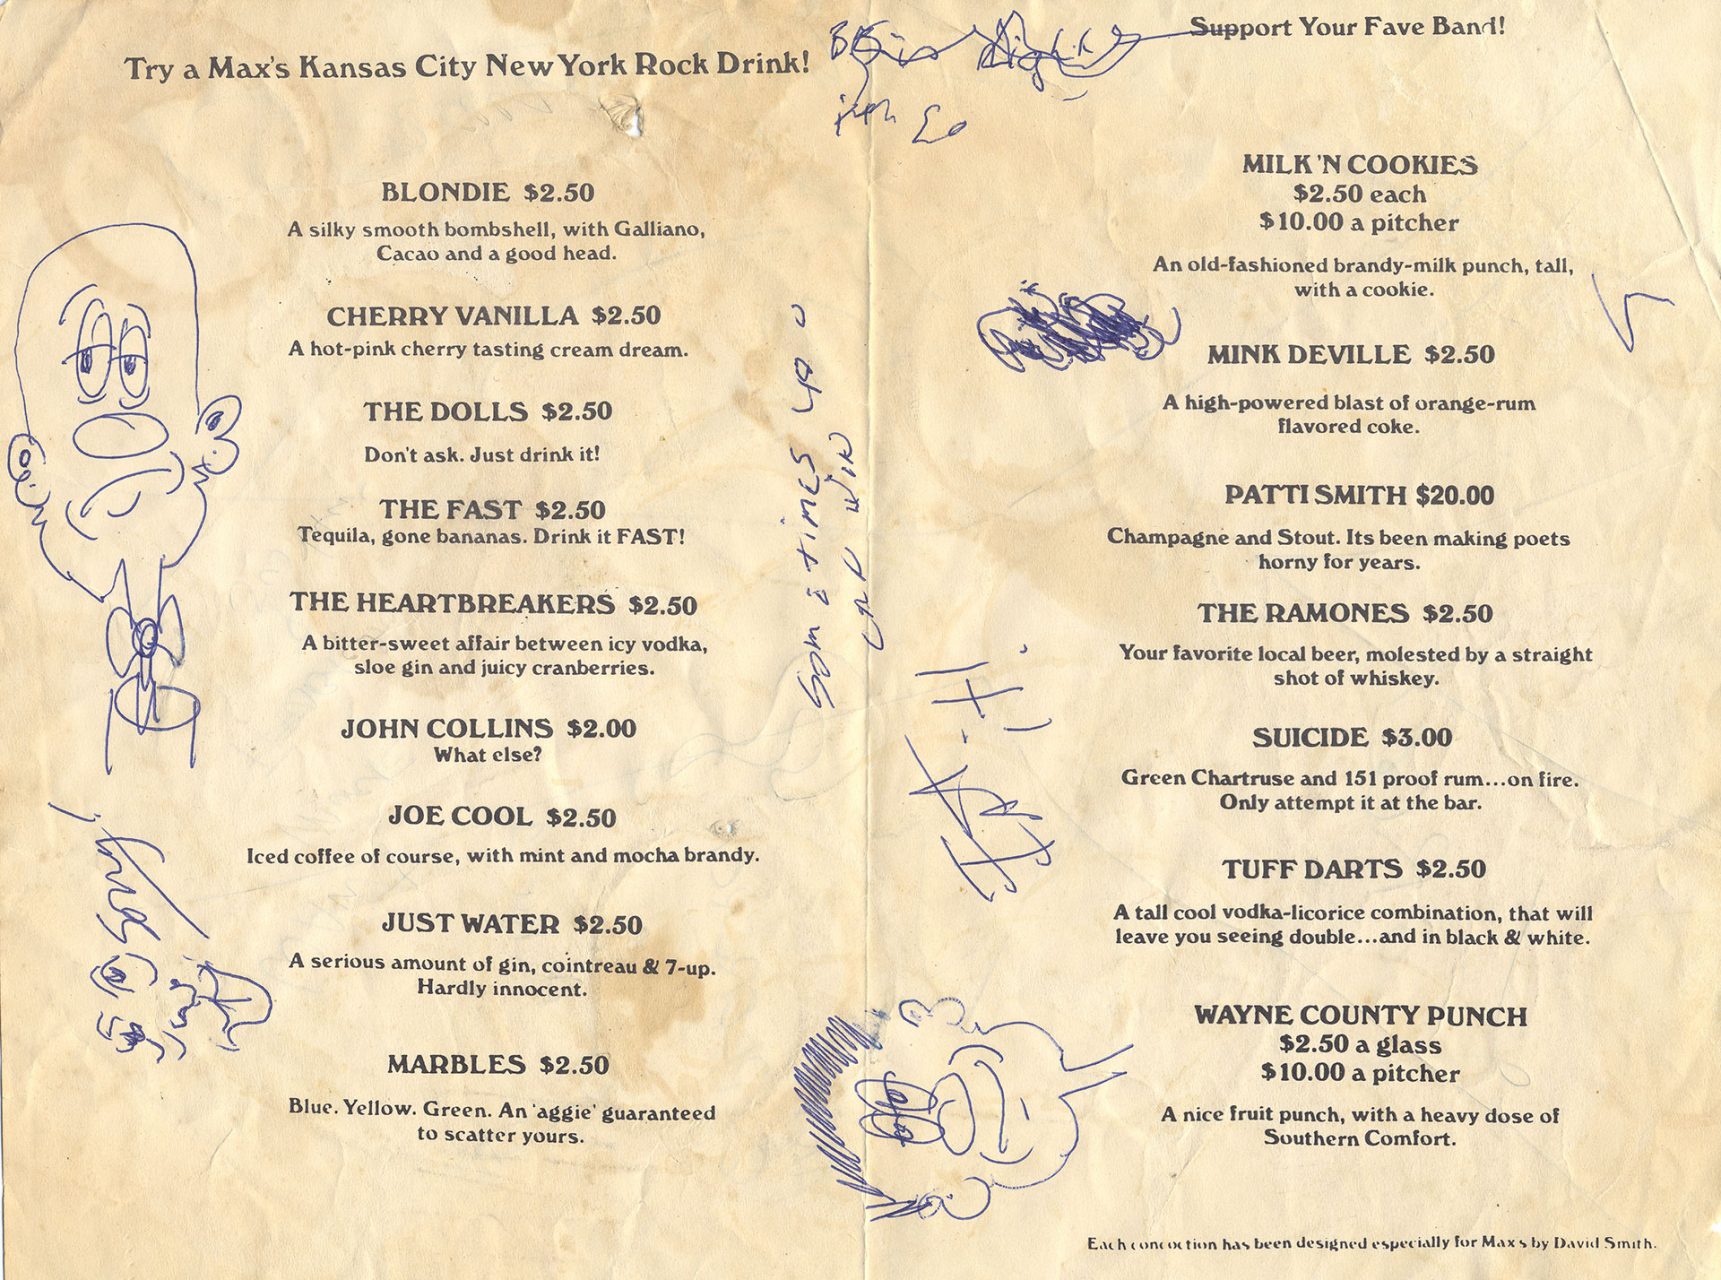 Try a Max's Kansas City New York Rock Drink!
BLONDIE $2.50
A silky smooth bombshell, with Galliano,
Cacao and a good head.
CHERRY VANILLA $2.50
A hot-pink cherry tasting cream dream.
THE DOLLS $2.50
Don't ask. Just drink it!
THE FAST $2.50
Tequila, gone bananas. Drink it FAST!
THE HEARTBREAKERS $2.50
A bitter-sweet affair between icy vodka,
sloe gin and juicy cranberries.
JOHN COLLINS $2.00
What else?
JOE COOL $2.50
Iced coffee of course, with mint and mocha brandy.
JUST WATER $2.50
A serious amount of gin, cointreau & 7-up.
Hardly innocent.
MARBLES $2.50
Blue. Yellow. Green. An 'aggie' guaranteed
to scatter yours.
SomETimES YOU
CAN WIN
Support Your Fave Band!
MILK 'N COOKIES
$2.50 each
$10.00 a pitcher
An old-fashioned brandy-milk punch, tall,
with a cookie.
MINK DEVILLE $2.50
A high-powered blast of orange-rum
flavored coke.
PATTI SMITH $20.00
Champagne and Stout. Its been making poets
horny for years.
THE RAMONES $2.50
Your favorite local beer, molested by a straight
shot of whiskey.
SUICIDE $3.00
Green Chartruse and 151 proof rum...on fire.
Only attempt it at the bar.
TUFF DARTS $2.50
A tall cool vodka-licorice combination, that will
leave you seeing double...and in black & white.
WAYNE COUNTY PUNCH
$2.50 a glass
$10.00 a pitcher
A nice fruit punch, with a heavy dose of
Southern Comfort.
Each concoction has been designed especially for Max's by David Smith.